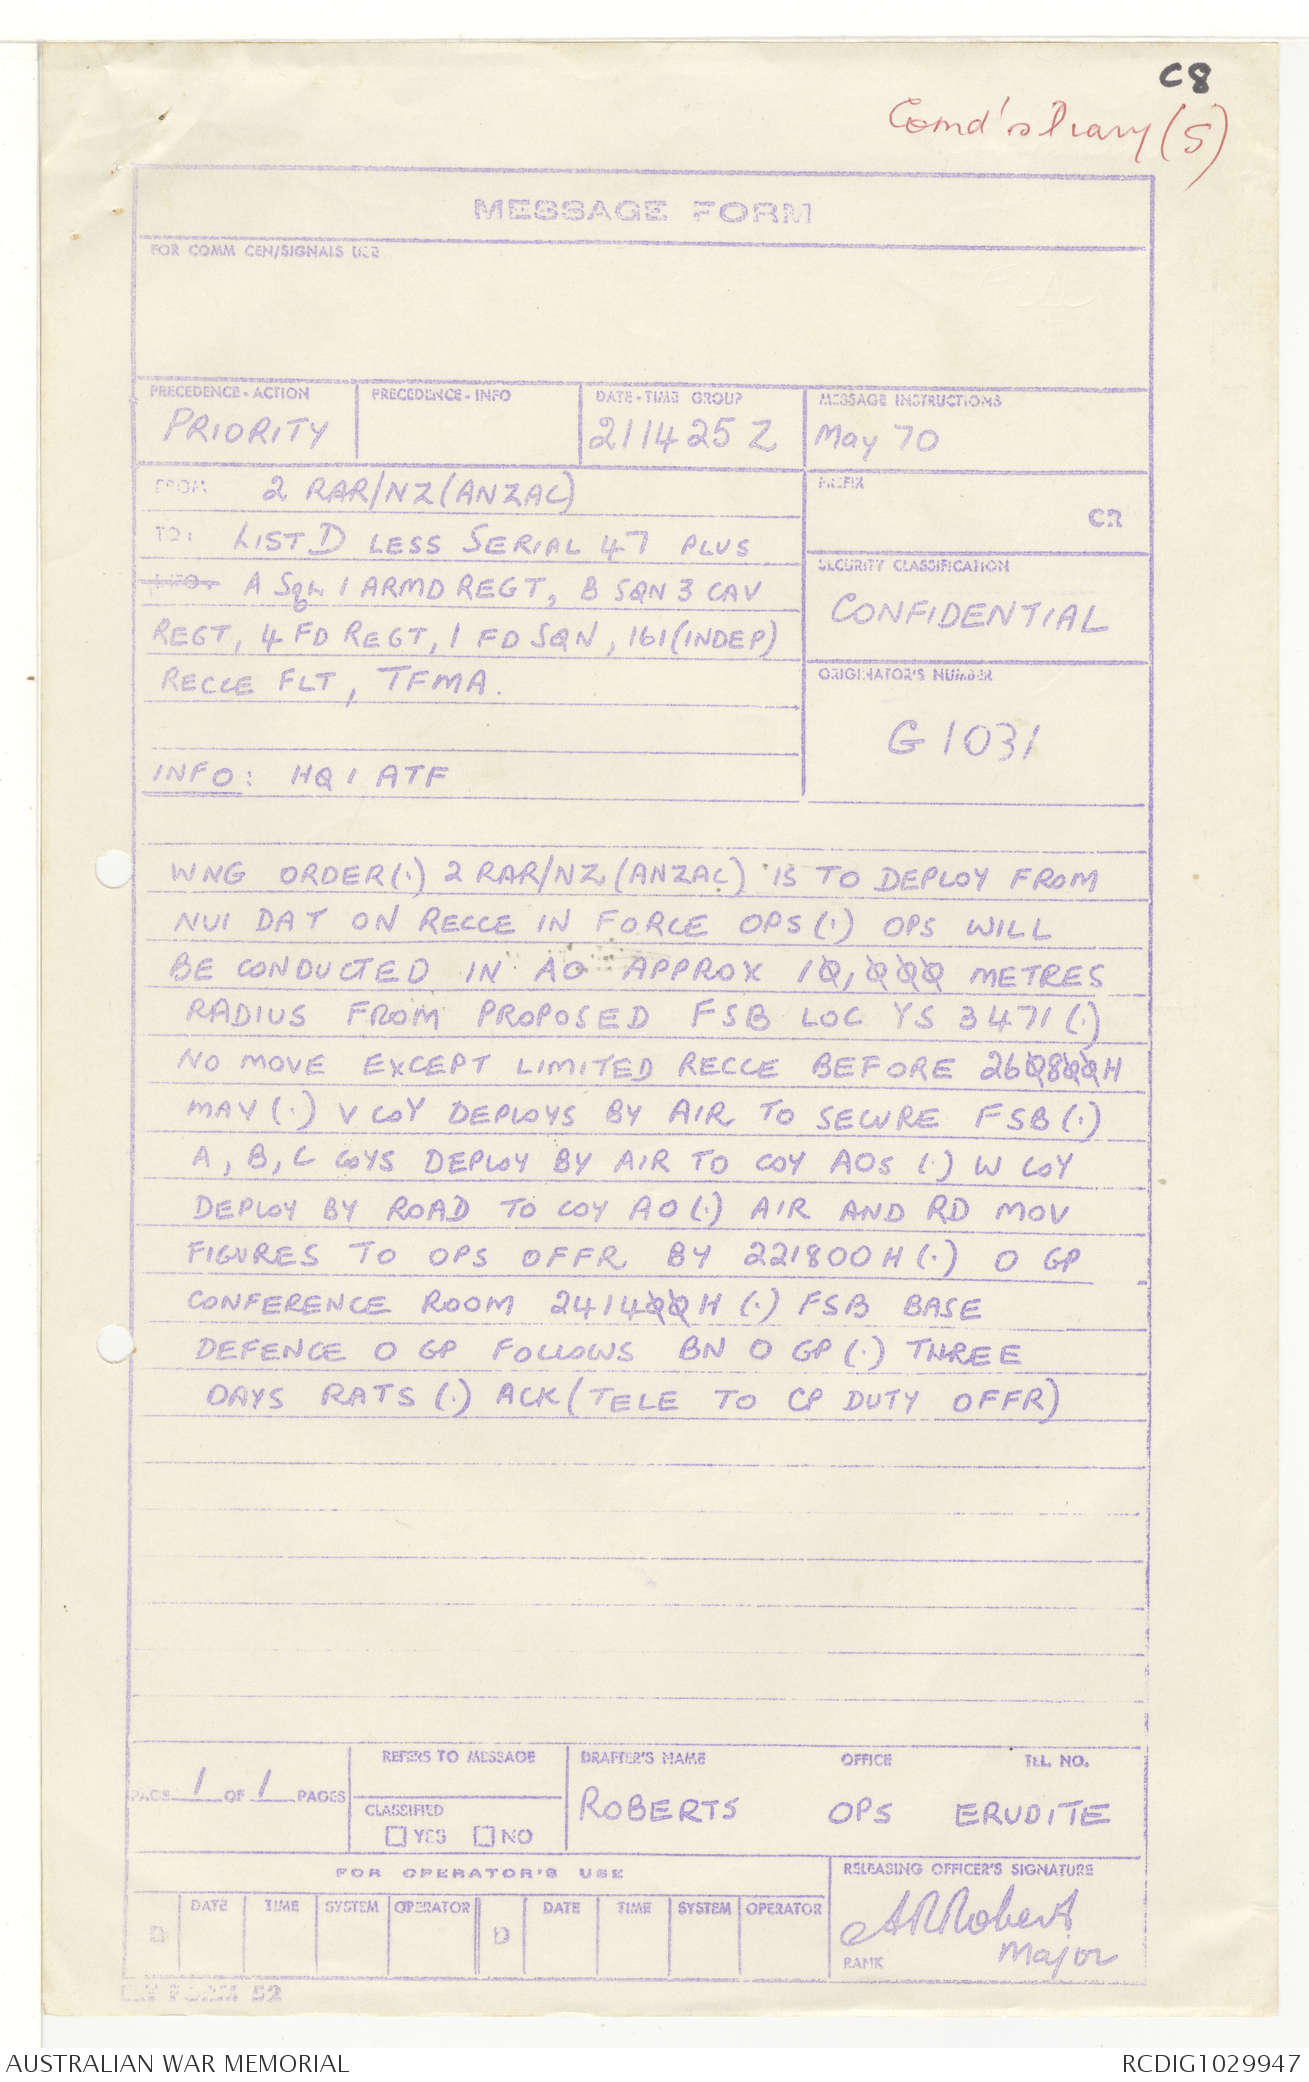 C8
Comd's Diary (5)
MESSAGE FORM
FOR COMM CEN/SIGNALS USE
PRECEDENCE - ACTION
PRIORITY
PRECEDENCE - INFO
DATE - TIME GROUP
211425 Z
MESSAGE INSTRUCTIONS
May 70
FROM 2 RAR/NZ (ANZAC)
PREFIX
CR
TO: LIST D LESS SERIAL 47 PLUS
INFO: A Sqn 1 ARMD REGT, B SQN 3 CAV
REGT, 4 FD REGT, 1 FD SQN, 161 (INDEP)
RECCE FLT, TFMA.
SECURITY CLASSIFICATION
CONFIDENTIAL
ORIGINATOR'S NUMBER
G 1031
INFO: HQ 1 ATF
WNG ORDER (.) 2 RAR/NZ (ANZAC) IS TO DEPLOY FROM
NUI DAT ON RECCE IN FORCE OPS (.) OPS WILL
BE CONDUCTED IN AO APPROX 10,000 METRES
RADIUS FROM PROPOSED FSB LOC YS 3471 (.)
NO MOVE EXCEPT LIMITED RECCE BEFORE 260800H
MAY (.) V COY DEPLOYS BY AIR TO SECURE FSB (.)
A, B, C COYS DEPLOY BY AIR TO COY AOS (.) W COY
DEPLOY BY ROAD TO COY AO (.) AIR AND RD MOV
FIGURES TO OPS OFFR BY 221800H (.) O GP
CONFERENCE ROOM 241400H (.) FSB BASE
DEFENCE O GP FOLLOWS BN O GP (.) THREE
DAYS RATS (.) ACK (TELE TO CP DUTY OFFR)
PAGE 1 OF 1 PAGES
REFERS TO MESSAGE
CLASSIFIED
YES NO
DRAFTER'S NAME OFFICE TEL. NO.
ROBERTS OPS ERUDITE
FOR OPERATOR'S USE
DATE TIME SYSTEM OPERATOR D DATE TIME SYSTEM OPERATOR
RELEASING OFFICER'S SIGNATURE
A R Roberts
Major
RANK
FORM 52
AUSTRALIAN WAR MEMORIAL RCDIG1029947